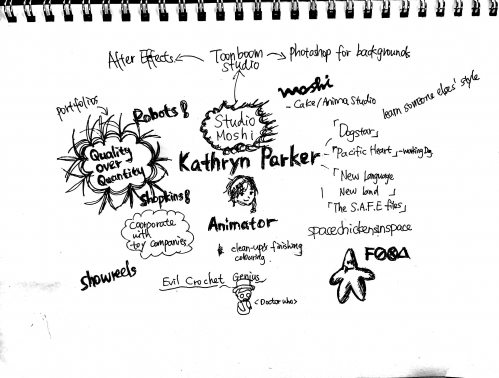 After Effects ← Toonboom Studio → Photoshop for backgrounds
portfolios
Robots!
Studio
Moshi
moshi
- Cake/Anima Studio
learn someone elses' style
Quality
over
Quantity
Kathryn Parker
「Dogstar」
「Pacific Heart」 - working Dog
「New Language
New land」
「The S.A.F.E files」
Shopkins!
Cooporate
with
toy companies
Animator
clean-up & finishing
colouring.
spacechickensinspace
showreels
Evil Crochet Genius
<Doctor who>